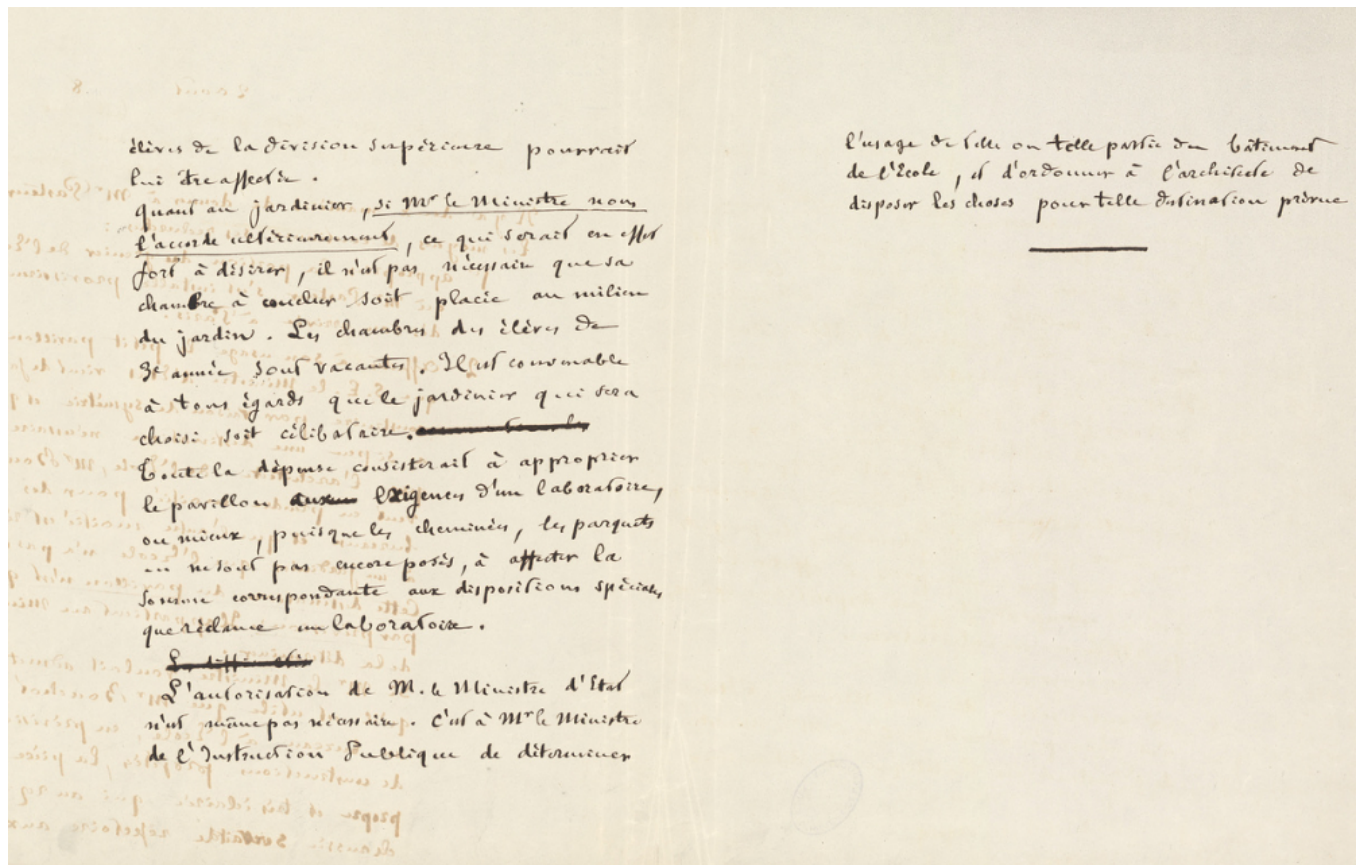 élèves de la division supérieure pourrait
lui être affectée.
quant au jardinier, si Mr le Ministre nous
l'accorde ultérieurement, ce qui serait en effet
fort à désirer, il n'est pas nécessaire que sa
chambre à coucher soit placée au milieu
du jardin. Les chambres des élèves de
3e année sont vacantes. Il est convenable
à tous égards que le jardinier qui sera
choisi soit célibataire.
Toute la dépense consisterait à approprier
le pavillon aux exigences d'un laboratoire,
ou mieux, puisque les cheminées, les parquets
ne sont pas encore posés, à affecter la
somme correspondante aux dispositions spéciales
que réclame un laboratoire.
L'autorisation de M. le Ministre d'Etat
n'est même pas nécessaire. C'est à Mr le Ministre
de l'Instruction Publique de déterminer
l'usage de telle ou telle partie du bâtiment
de l'École, et d'ordonner à l'architecte de
disposer les choses pour telle destination prévue